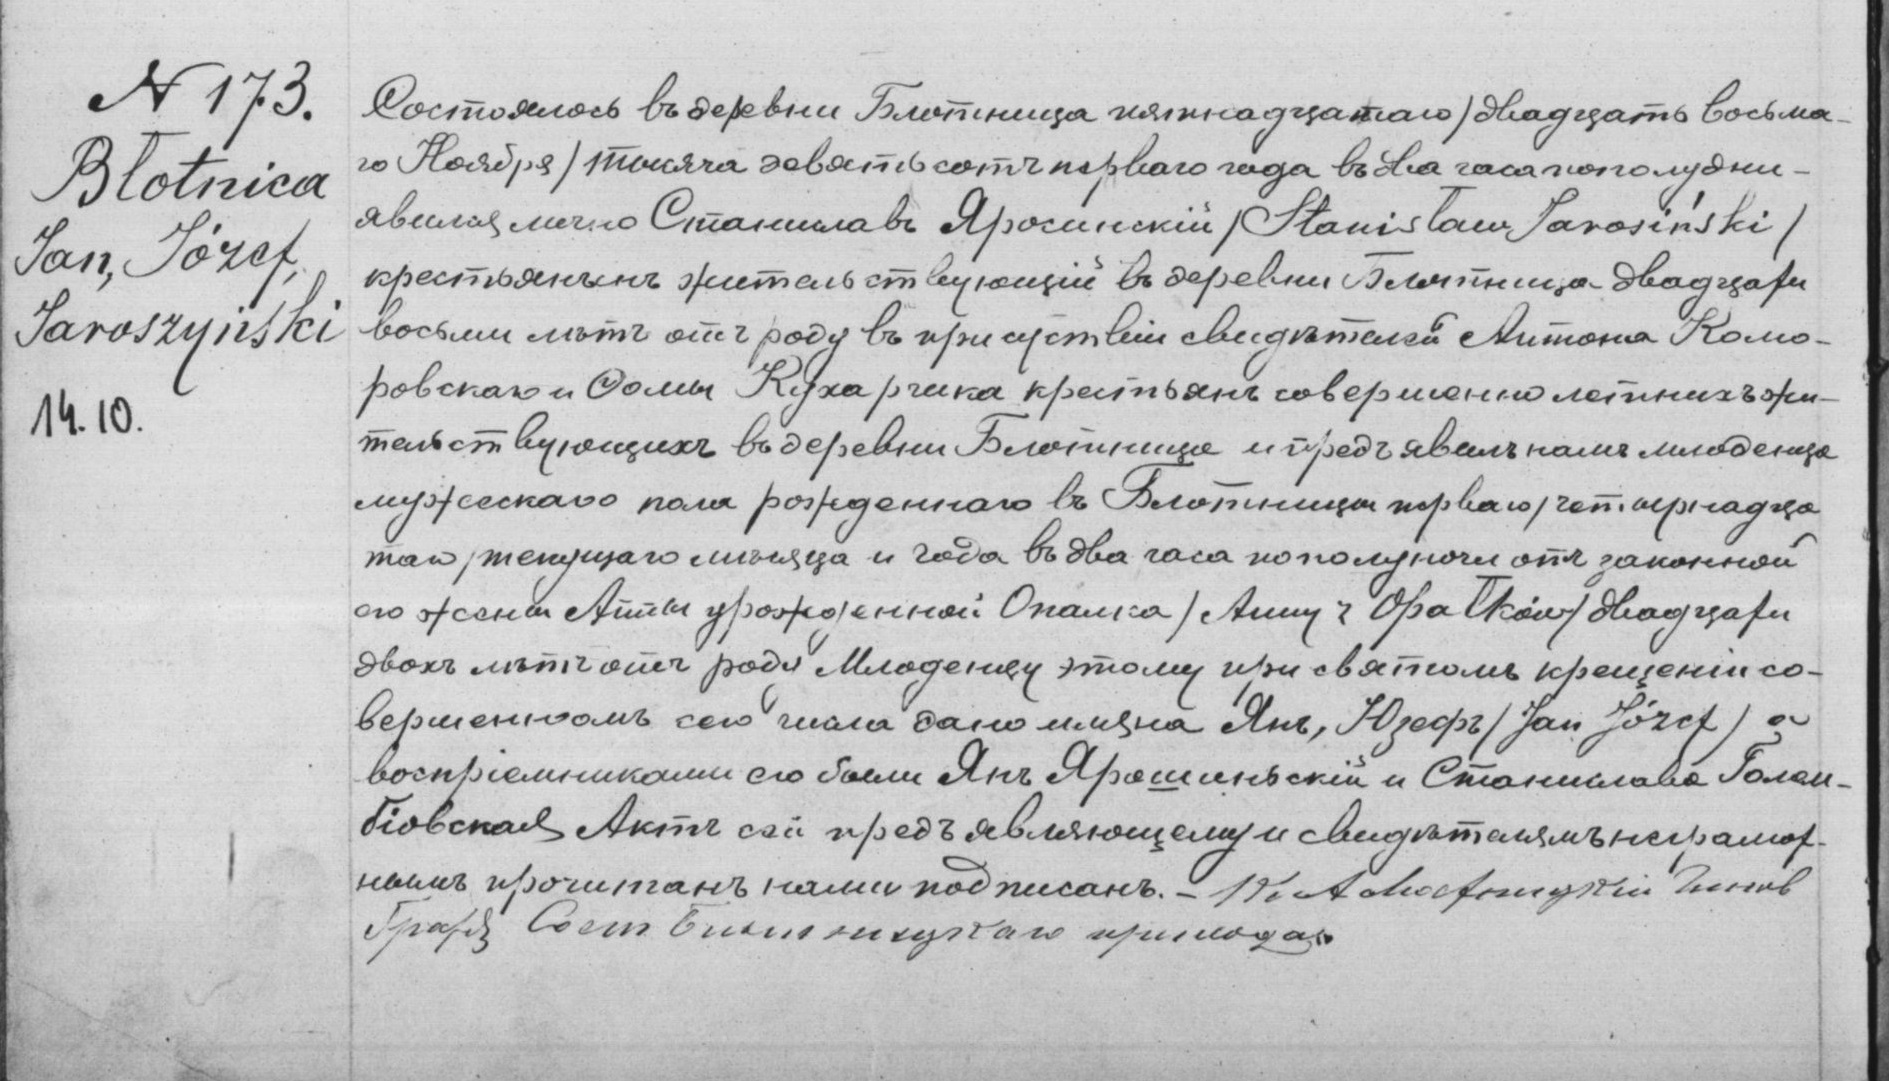 N 173.
Błotnica
Jan, Józef,
Jaroszyński
14.10.
Состоялось въ деревни Блотница пятнадцатаго / двадцать восьма-
го Ноября / тысяча девятьсотъ перваго года въ два часа пополудни -
явился лично Станиславъ Яросинскій / Stanisław Jarosiński /
крестьянинъ жительствующій въ деревни Блотница двадцати
восьми лѣтъ отъ роду въ присутствіи свидѣтелей Антона Комо-
ровскаго и Фомы Кухарчика крестьянъ совершеннолетнихъ жи-
тельствующихъ въ деревни Блотнице и предъявилъ намъ младенца
мужескаго пола рожденнаго въ Блотницы перваго / четырнадца
таго / текущаго мѣсяца и года въ два часа пополуночи отъ законной
его жены Анны урожденной Опалка / Anny z Opałków / двадцати
двохъ лѣтъ отъ роду Младенцу этому при святомъ крещеніи со-
вершенномъ сего числа дано имяна Янъ, Юзефъ / Jan Józef / а
воспріемниками его были Янъ Ярошиньскій и Станислава Голем-
біовская Актъ сей предъявляющему и свидѣтелямъ неграмот-
нымъ прочитанъ нами подписанъ. -
Сост прихода